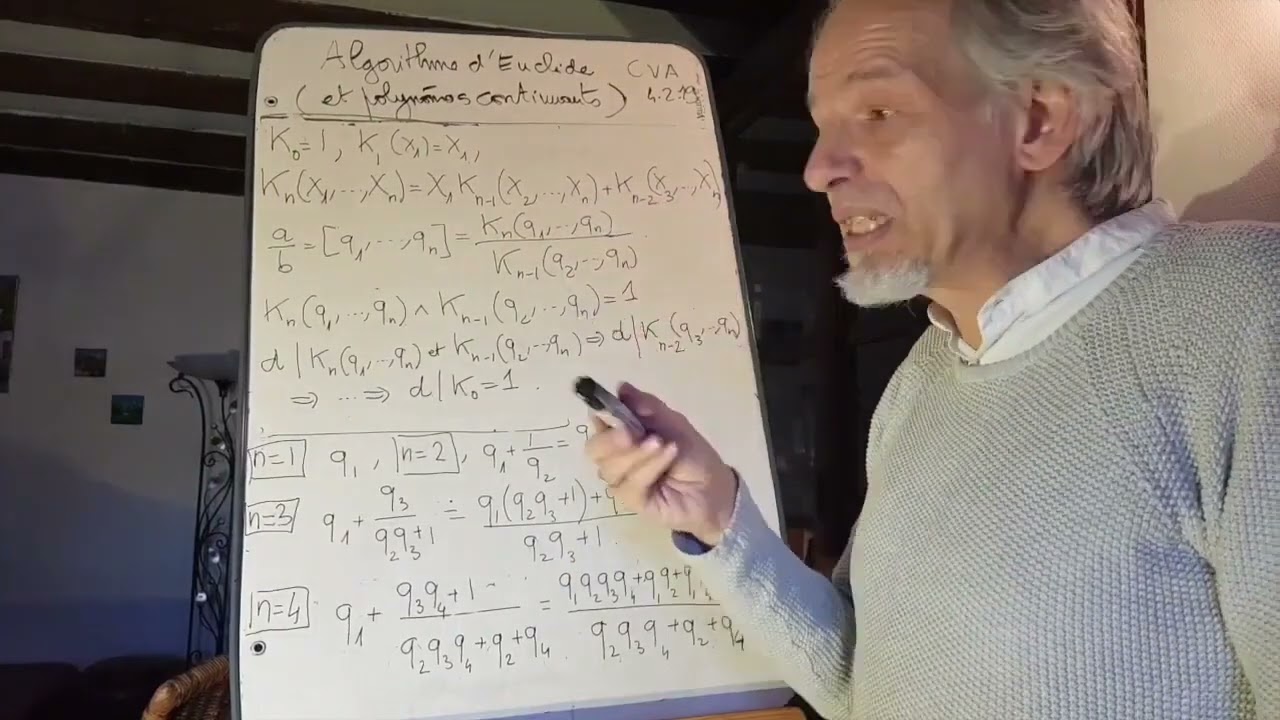 Algorithme d'Euclide CVA
(et polynômes continuants) 4.2.19
K₀=1, K₁(X₁)=X₁,
Kₙ(X₁,...,Xₙ)=X₁Kₙ₋₁(X₂,...,Xₙ)+Kₙ₋₂(X₃,...,Xₙ)
a/b=[q₁,...,qₙ]=Kₙ(q₁,...,qₙ)/Kₙ₋₁(q₂,...,qₙ)
Kₙ(q₁,...,qₙ)∧Kₙ₋₁(q₂,...,qₙ)=1
d|Kₙ(q₁,...,qₙ) et Kₙ₋₁(q₂,...,qₙ)⇒d|Kₙ₋₂(q₃,...,qₙ)
⇒ ... ⇒ d|K₀=1.
n=1 q₁, n=2, q₁+1/q₂=
n=3 q₁+q₃/(q₂q₃+1)=(q₁(q₂q₃+1)+q/(q₂q₃+1)
n=4 q₁+(q₃q₄+1)/(q₂q₃q₄+q₂+q₄)=(q₁q₂q₃q₄+q₁q₂+q₁/(q₂q₃q₄+q₂+q₄)